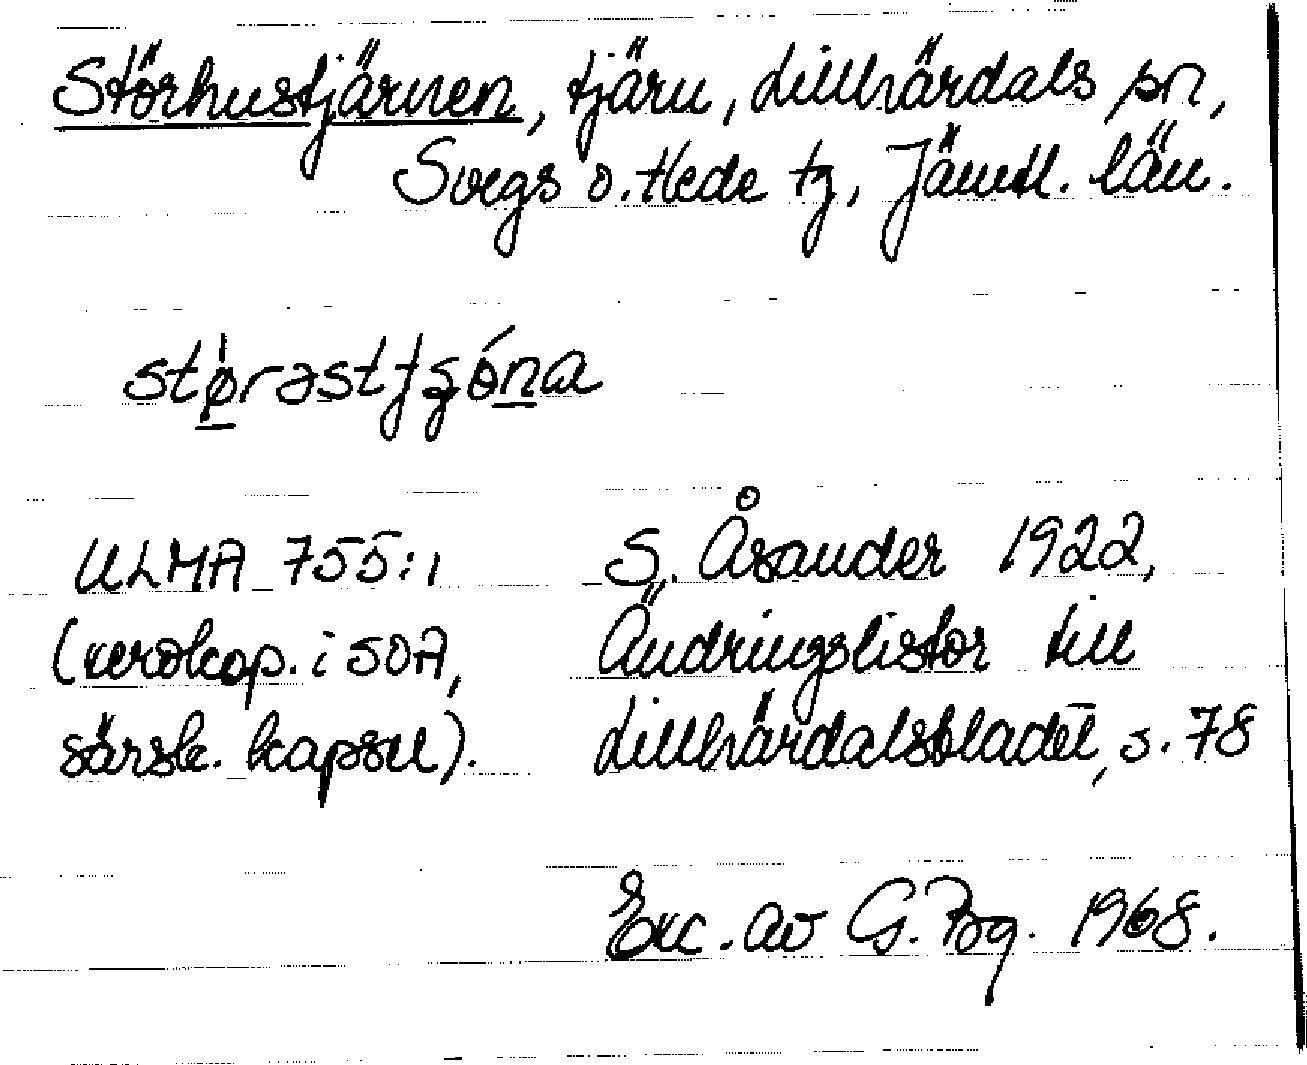 Störhustjärnen, tjärn, Lillhärdals sn,
Svegs o. Hede tg, Jämtl. län.
størəstjʂóna
ULMA 755:1
(xerokop. i SOA,
särsk. kapsel).
S. Åsander 1922,
Ändringslistor till
Lillhärdalsbladet, s. 78
Exc. av G. Bg. 1968.